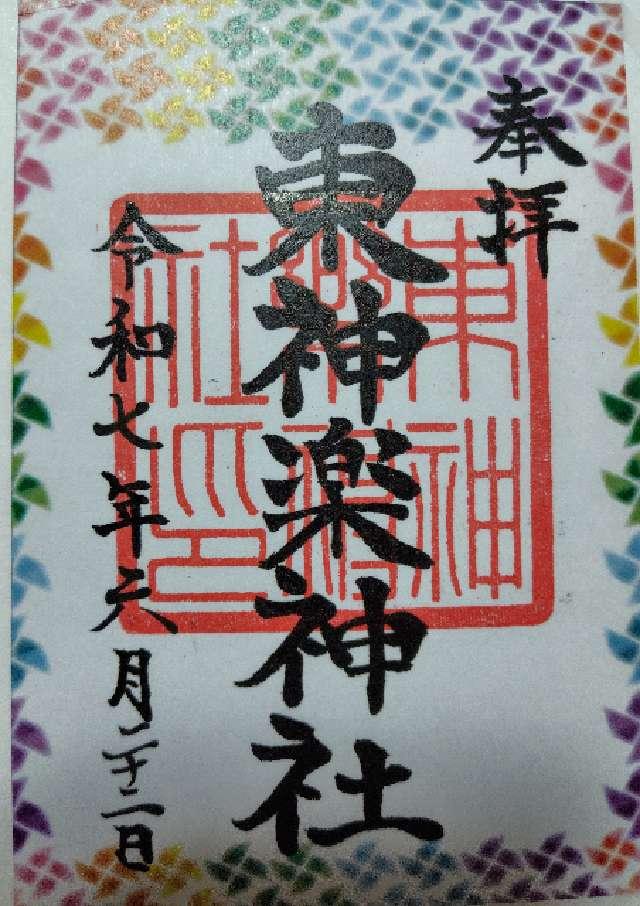 奉拝
東神楽神社
令和七年六月二十二日
東神楽神社印